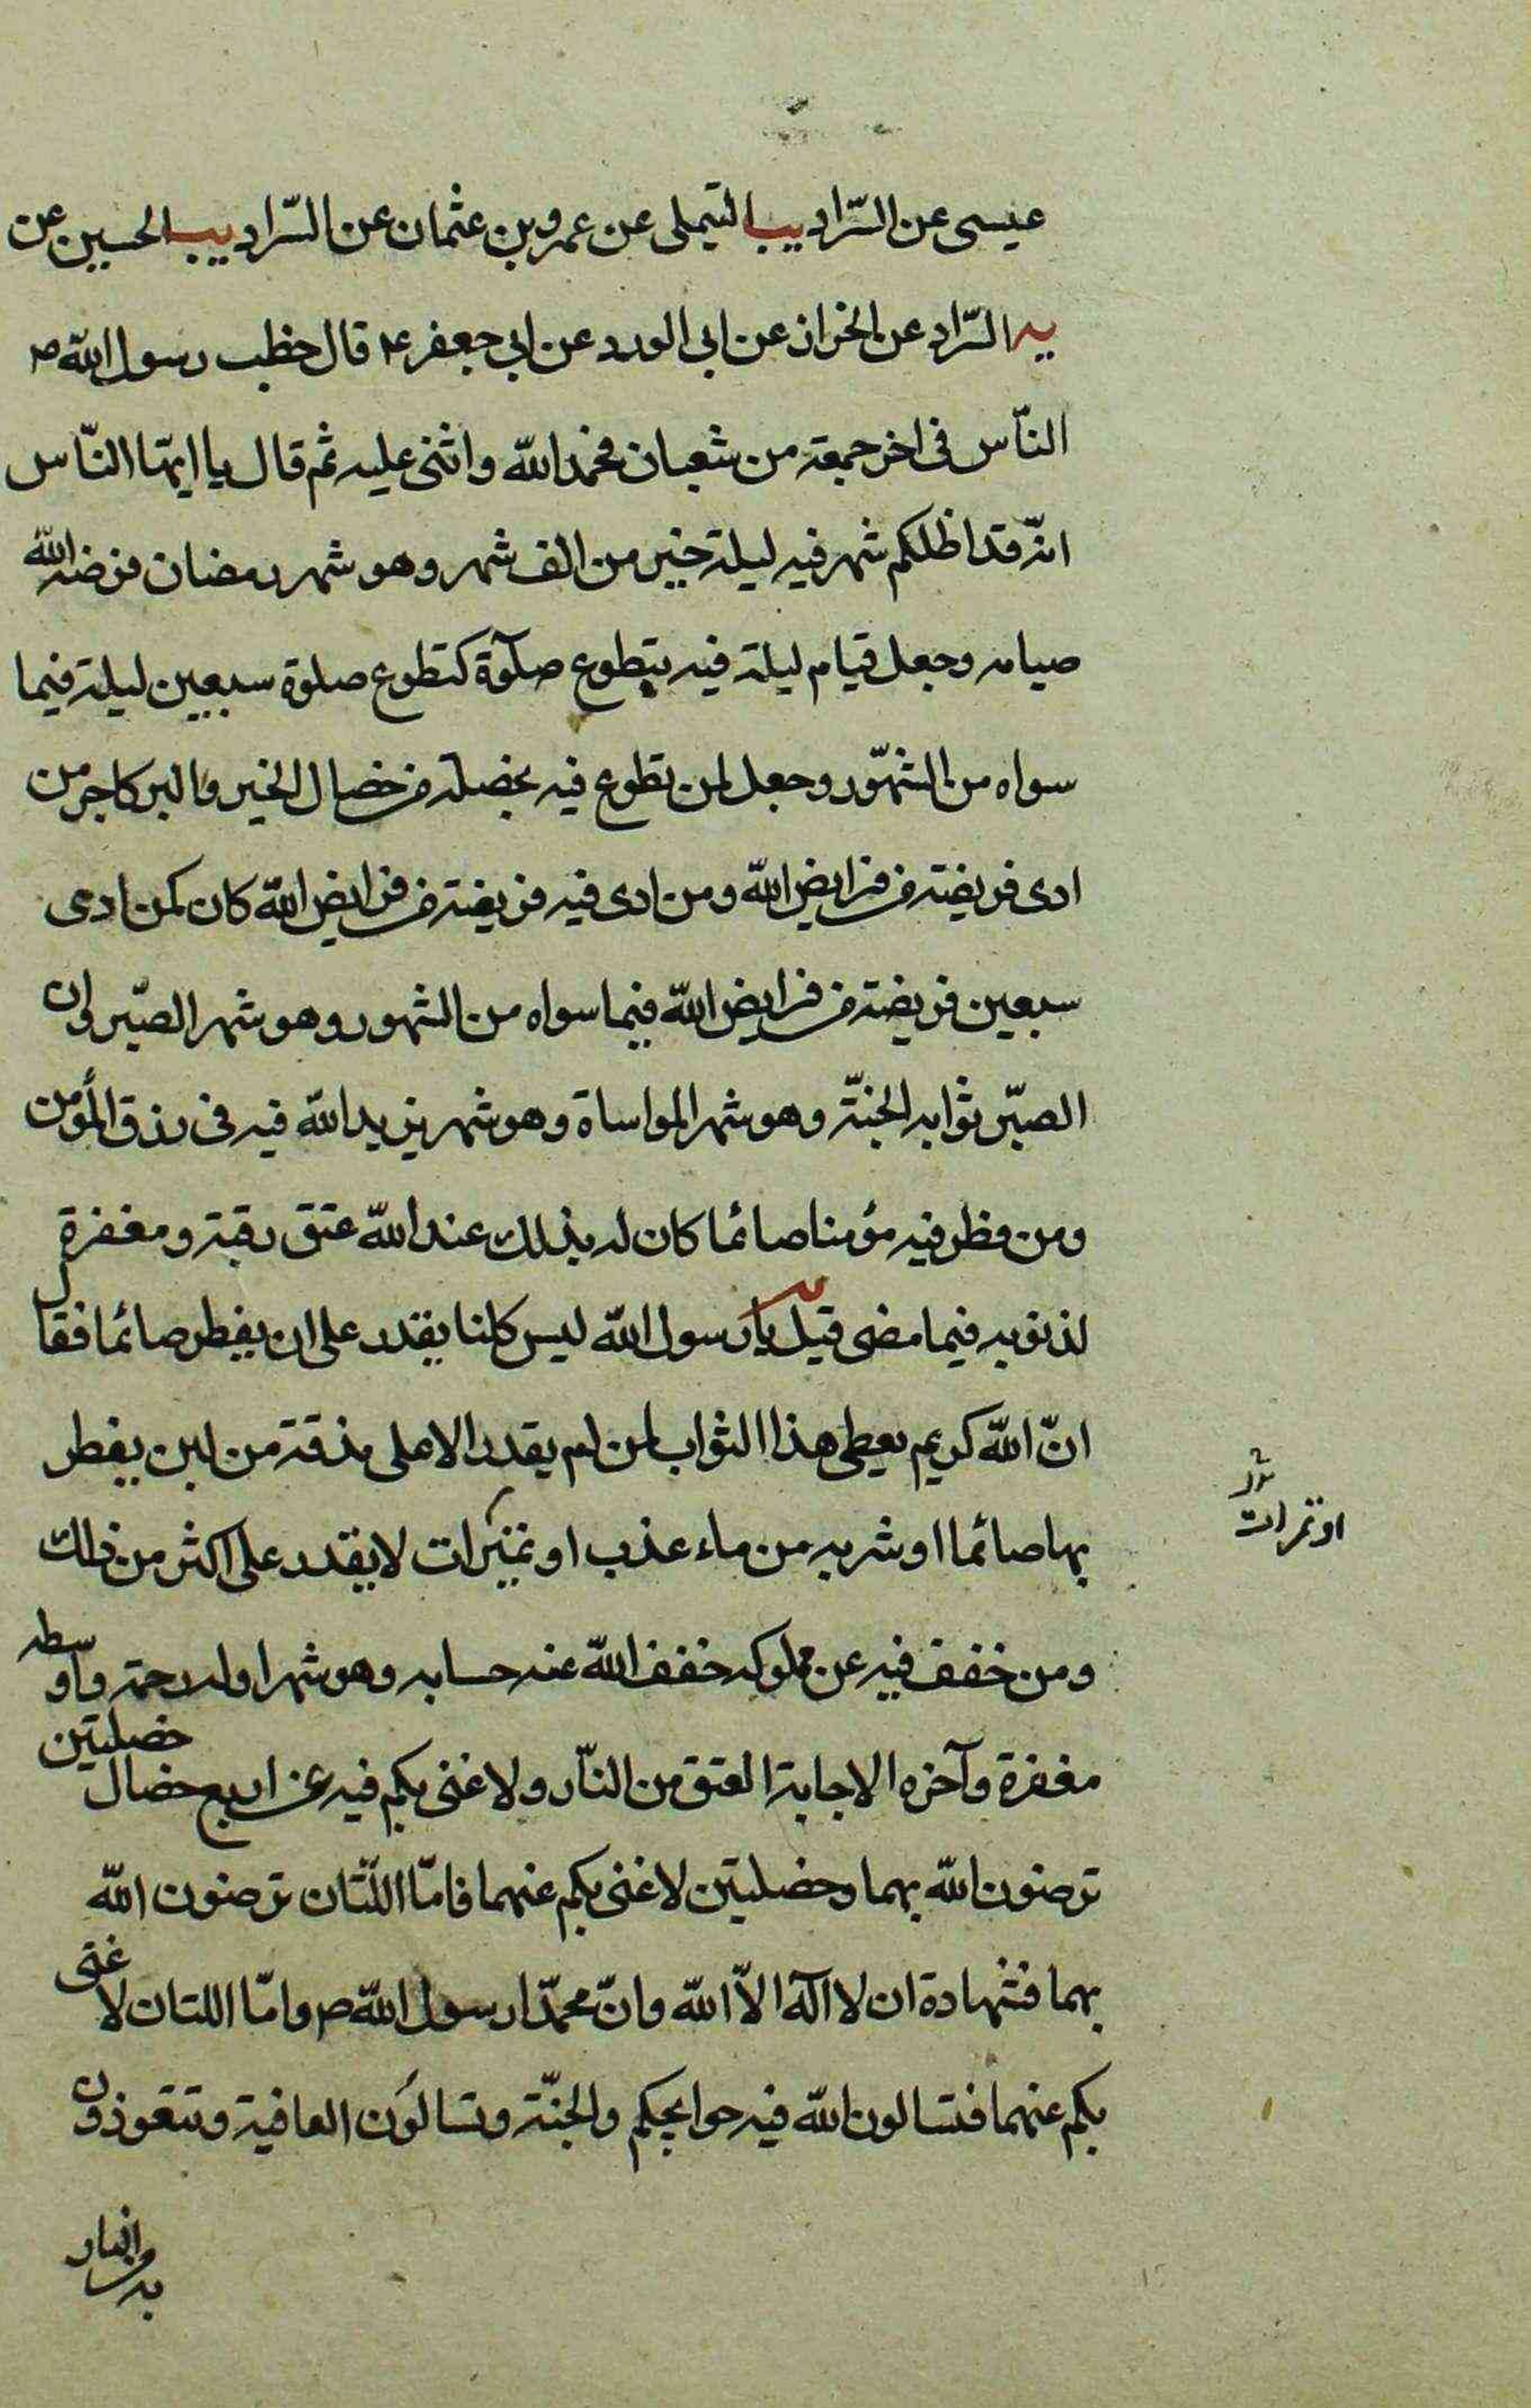 عيسى عن السّراد يب التيملى عن عمرو بن عثمان عن السّراد يب الحسين عن
يه السّراد عن الخراز عن ابى الورد عن ابى جعفر ع قال خطب رسول الله ص
النّاس فى اخر جمعة من شعبان فحمد الله واثنى عليه ثم قال يا ايها النّاس
انّه قد اظلكم شهر فيه ليلة خير من الف شهر وهو شهر رمضان فرض الله
صيامه وجعل قيام ليلة فيه بتطوع صلوة كتطوع صلوة سبعين ليلة فيما
سواه من الشهور وجعل لمن تطوع فيه بخصلة من خصال الخير والبر كاجر من
ادى فريضة من فرايض الله ومن ادى فيه فريضة من فرايض الله كان كمن ادى
سبعين فريضة من فرايض الله فيما سواه من الشهور وهو شهر الصّبر وان
الصبّر ثوابه الجنّة وهو شهر المواساة وهو شهر يزيد الله فيه فى رزق المؤمن
ومن فطر فيه مؤمنا صائما كان له بذلك عند الله عتق رقبة ومغفرة
لذنوبه فيما مضى قيل يا رسول الله ليس كلنا يقدر على ان يفطر صائما فقال
انّ الله كريم يعطى هذا الثواب لمن لم يقدر الا على مذقة من لبن يفطر
بها صائما او شربه من ماء عذب او تميرات لا يقدر على اكثر من ذلك
او تمرات
ومن خفف فيه عن مملوكه خفف الله عنه حسابه وهو شهر اوله رحمة واوسطه
مغفرة وآخره الاجابة العتق من النّار ولا غنى بكم فيه عن اربع خصال خصلتين
ترضون الله بهما وخصلتين لا غنى بكم عنهما فامّا اللّتان ترضون الله
بهما فشهادة ان لا اله الاّ الله وانّ محمّدا رسول الله ص وامّا اللتان لا غنى
بكم عنهما فتسالون الله فيه حوايجكم والجنّة وتسالون العافية وتتعوذون
به من النار